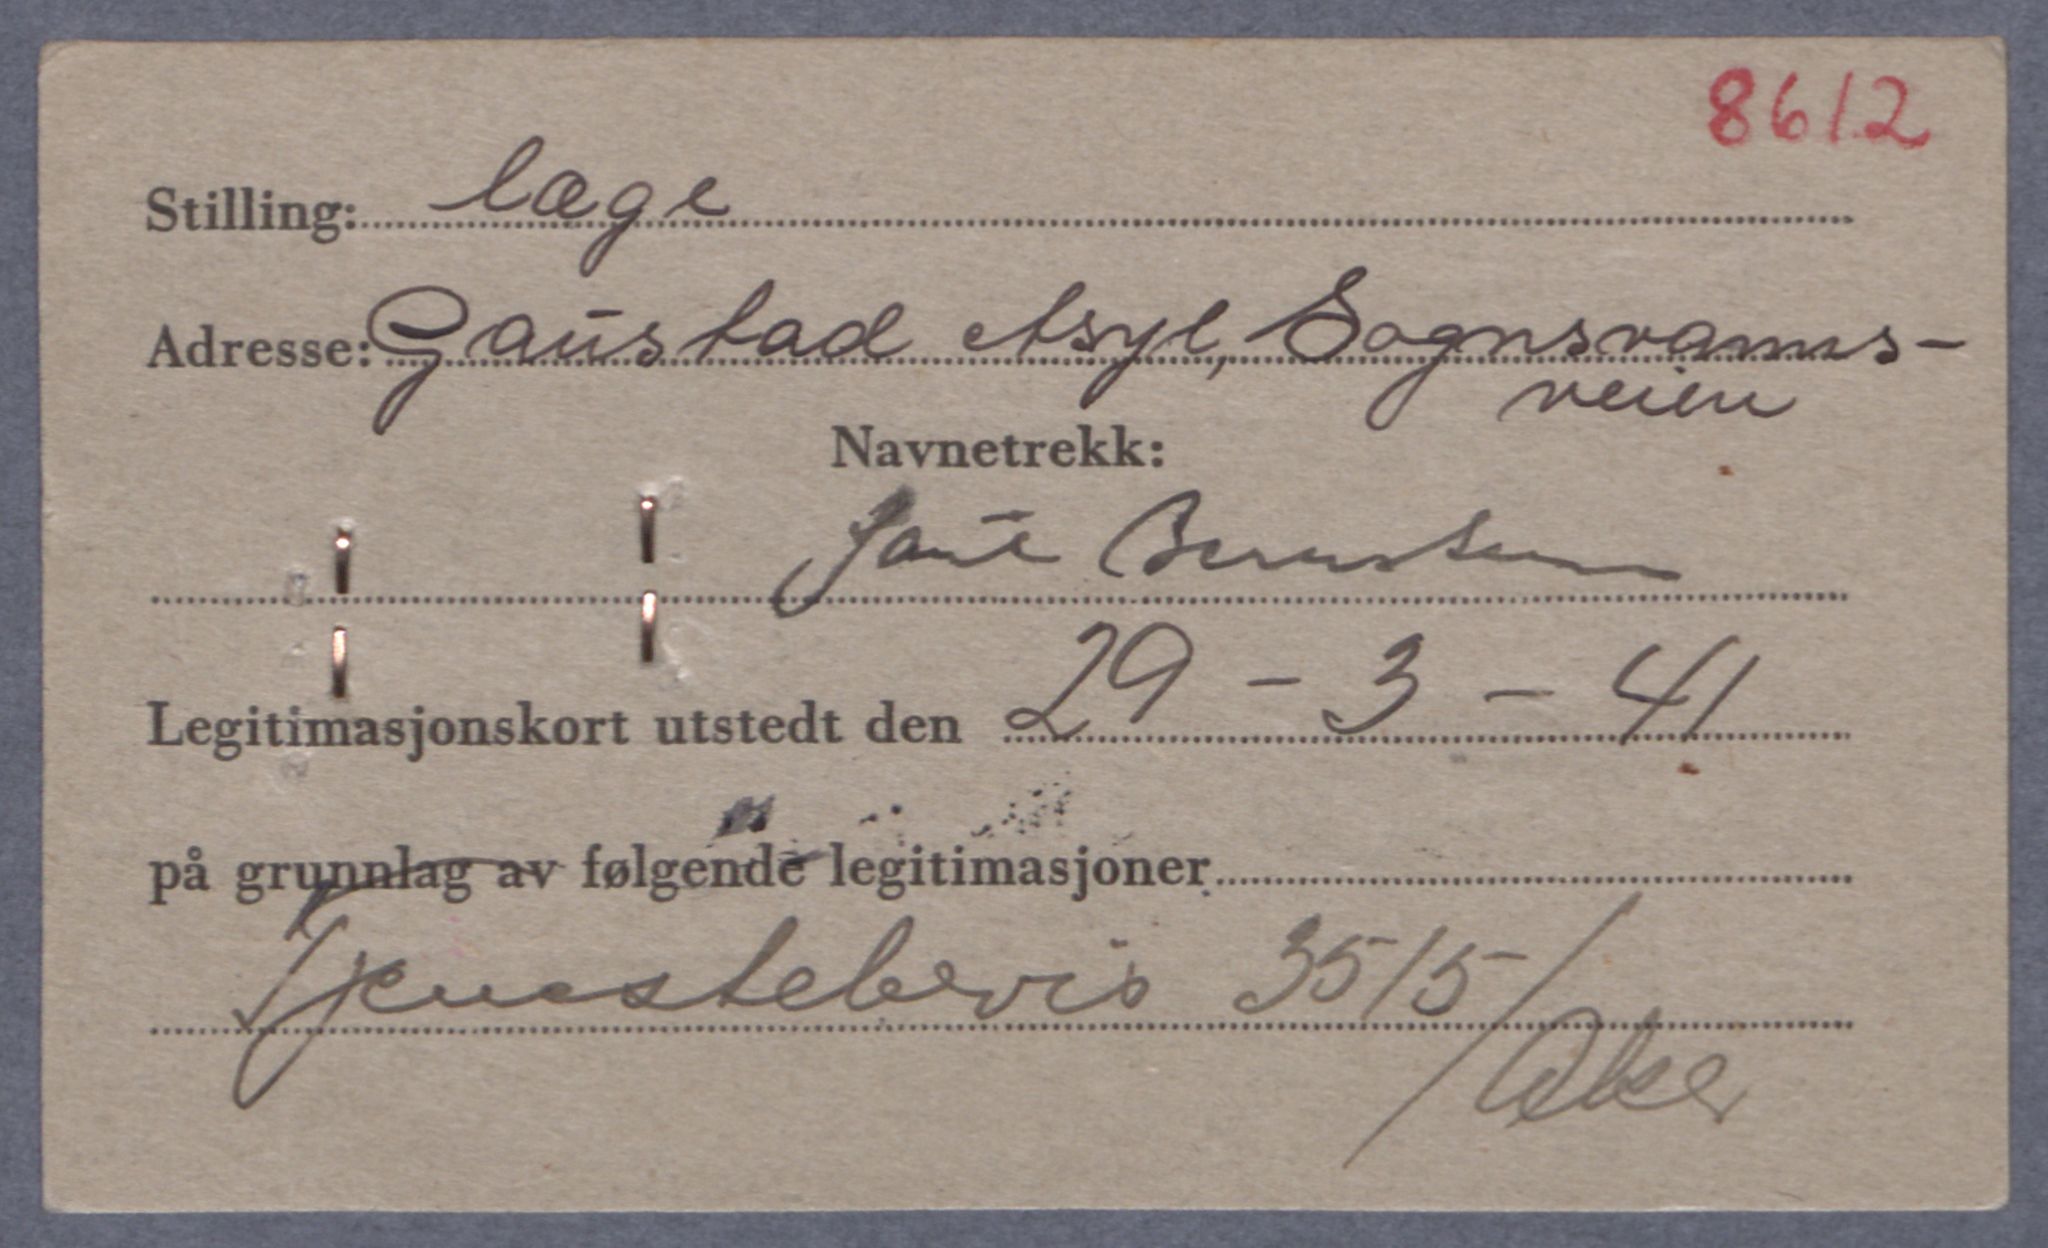 8612
Stilling: læge
Adresse: Gaustad Asyl, Sognsvanns-
veien
Navnetrekk:
Legitimasjonskort utstedt den 29 - 3 - 41
på grunnlag av følgende legitimasjoner
Tjenestebevis 3515/
Aker